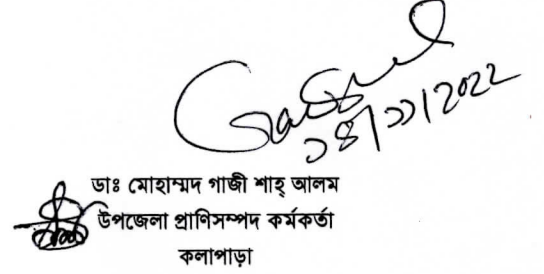 ১৪/১১/2022
ডাঃ মোহাম্মদ গাজী শাহ্ আলম
উপজেলা প্রাণিসম্পদ কর্মকর্তা
কলাপাড়া